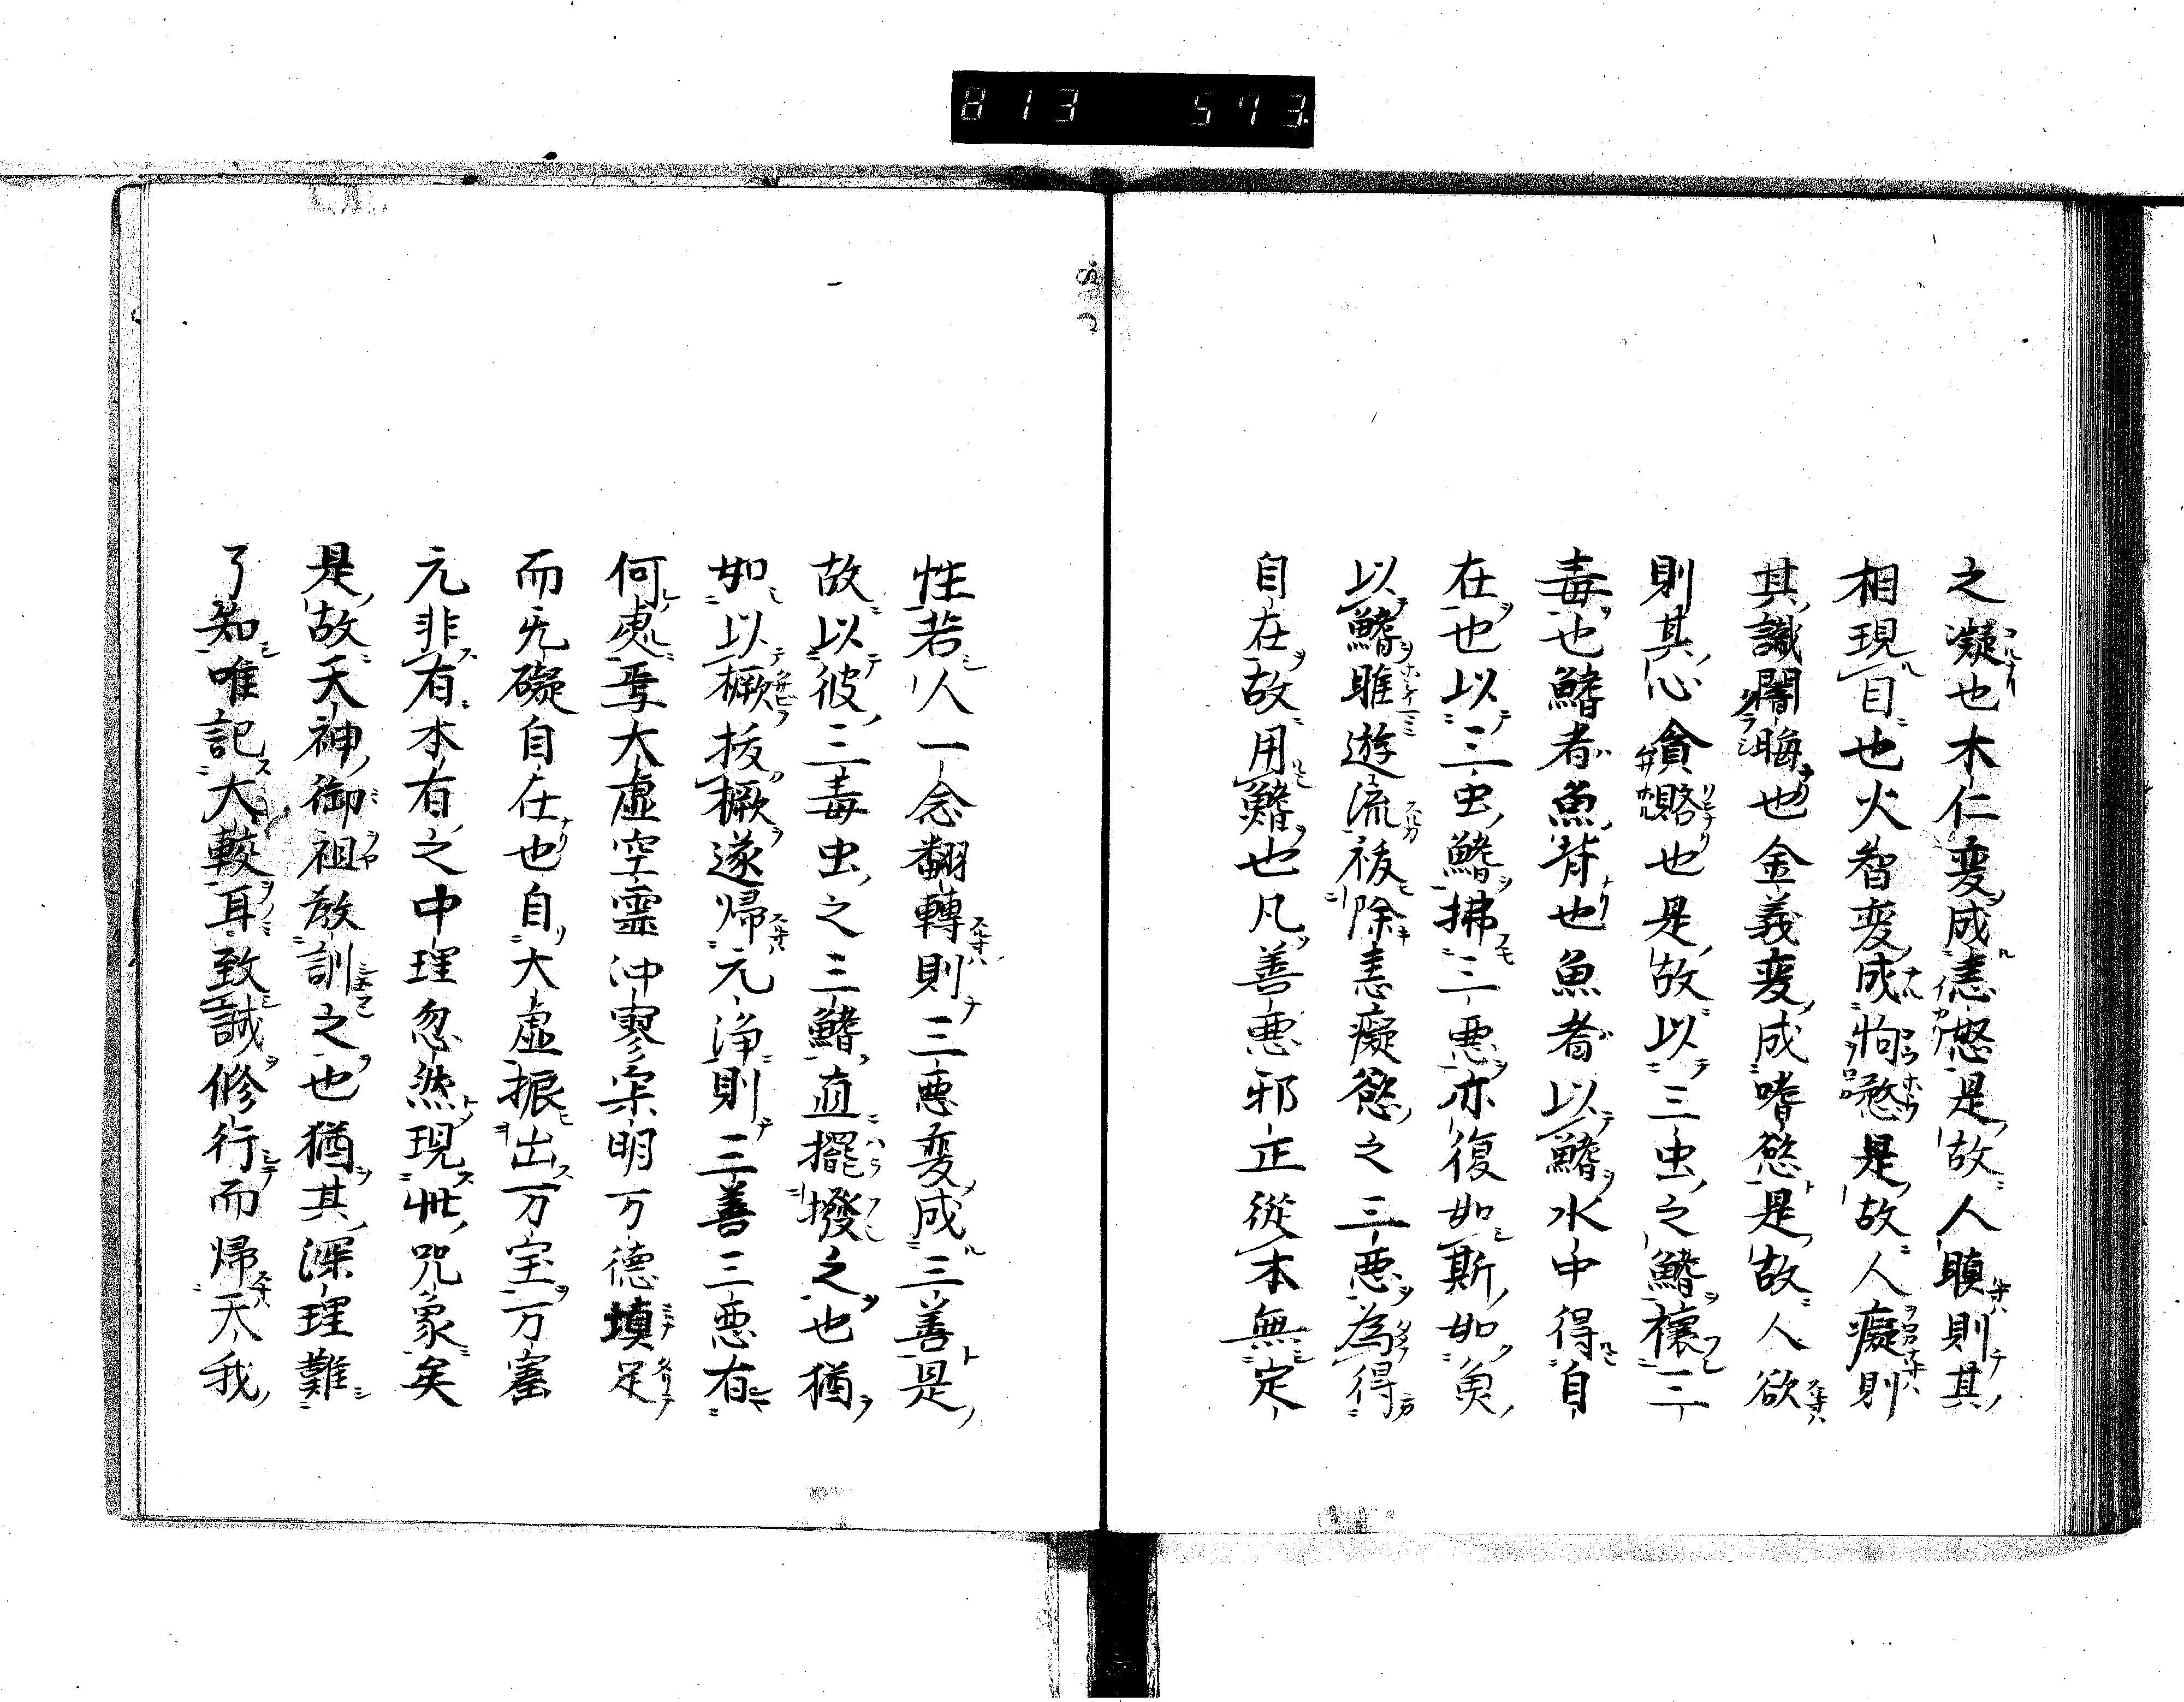 813 573
之凝也木仁変成恚怒是故人瞋則其
相現目也火智変成㤭憨是故人癡則
其識闇晦也金義変成嗜慾是故人欲
則其心貪賂也是故以三虫之鰭禳三
毒也鰭者魚背也魚者以鰭水中得自
在也以三虫鰭拂三悪亦復如斯如魚
以鰭雎遊流祓除恚癡慾之三悪為得
自在故用鰭也凡善悪邪正從本無定
性若人一念翻轉則三悪変成三善是
故以彼三毒虫之三鰭直擺撥之也猶
如以橛抜橛遂帰元浄則三善三悪有
何處焉大虚空霊沖寥寀明万徳填足
而无礙自在也自大虚振出万宝万富
元非有本有之中理忽然現此咒象矣
是故天神御祖教訓之也猶其深理難
了知唯記大較耳致誠修行而帰天我